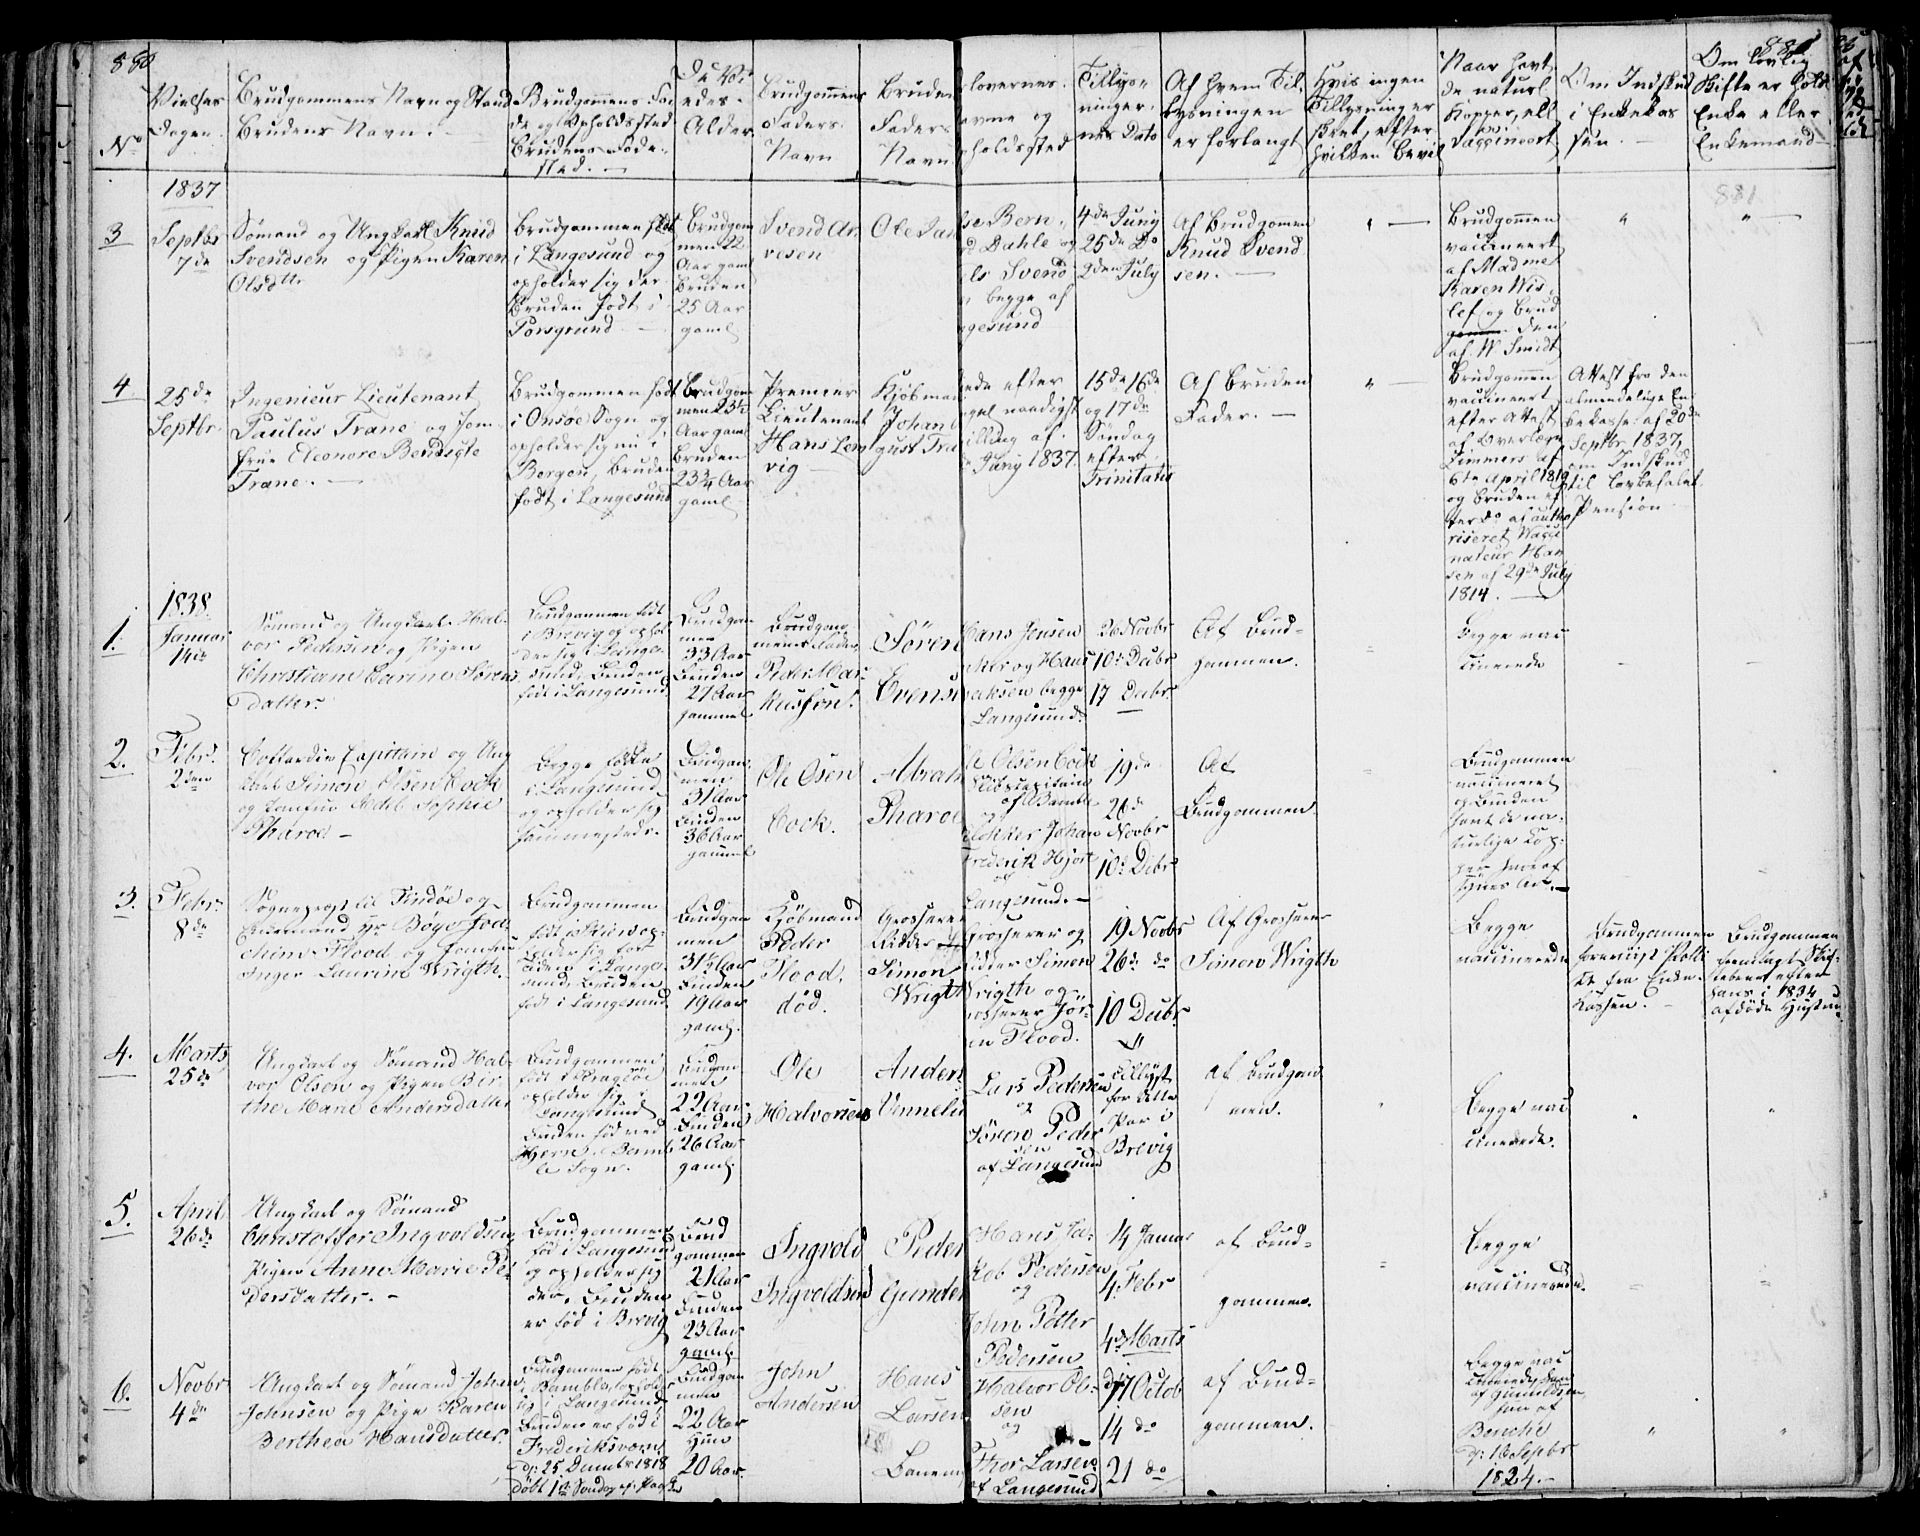 880
881
No
Vielses
Dagen.
Brudgommens Navn og Stand
Brudens Navn.
Brudgommens Fø-
de og Opholdssted
Brudens Føde-
sted.
De Vi-
edes
Alder
Brudgommens
Faders
Navn
Bruden
Faders
Navn
lovernes
avne og
holdssted
Tillys-
ninger-
nes Dato
Af hvem Til-
lysningen
er forlangt
Hvis ingen
Tillysning er
skeet, efter
hvilken Bevil
Naar havt
de naturl
Kopper, ell
Vaccineert
Om Indskud
i Enkekas
sen.
Om lovlig
Skifte er holdt
Enke eller
Enkemand
1837
3
Septbr
7de
Sømand og Ungkarl Knud
Svendsen og Pigen Karen
Olsdtr
Brudgommen født
i Langesund og
opholder sig der
Bruden født i
Porsgrund
Brudgom
men 22
Aar gaml
Bruden
25 Aar
gaml
Svend Ar-
vesen
Ole
se Bern-
d Dahle og
els Svend
begge af
ngesund
4de Juny
25de Do
2den July
Af Brudgomen
Knud Svend
sen.
Brudgommen
vaccineert
af Madme
Karen Wis
lef og Brud
den
af W Smidt
4
25de
Septbr
Ingenieur Lieutenant
Paulus Trane og Jom-
frue Eleonore Bendigte
Trane.
Brudgommen født
i Onsøe Sogn og
opholder sig nu i
Bergen, Bruden
født i Langesund
Brudgom
men 23½
Aar gaml
Bruden
23¾ Aar
gaml
Premier
Lieutenant
Hans Lem
vig
Kjøbmand
Johan
gust Tra
ede efter
gel naadigst
illing af
Juny 1837.
15de 16de
og 17de
Søndag
efter
Trinitatis
Af Bruden
Fader.
Brudgommen
vaccineert
efter Attest
af Overlæge
Zimmers af
6te April 1819
og Bruden ef
ter Do af autho
riseret Vacci
nateur Han
sen af 29de July
1814.
Attest fra den
almindelige En
kekasse af 20de
Septbr 1837,
om Indskud
til lovbefalet
Pension
1838.
1.
Januar
14de
Sømand og Ungkarl Hal-
vor Pedersen og Pigen
Christiane Carine Søren
datter.
Brudgommen født
i Brevig og ophol
der sig i Lange-
sund, Bruden
født i Langesund
Brudgom
men
33 Aar
Bruden
27 Aar
gammel
Brudgom
mens Fader
Peder Mar-
kussøn.
Søren
Evens
Hans Jensen
og Hans
aksen begge
Langesund.
26 Novbr
10de Decbr
17 Decbr
Af Brud-
gommen.
Begge vac
cinerede
2.
Febr.
2den
Cofferdie Capitain og Ung
karl Simon Olsen Cock
og Jomfru Sophie
Pharoe
Begge fødte
i Langesund
og opholder sig
sammesteds.
Brudgom
men
31 Aar
Bruden
36 Aar
gammel
Ole Osen
Cock.
Abrah
Pharoe
e Olsen Cock
Skibscapitain
af Bamble
og
Johan
Frederik Hjort
af
Langesund.
19de
26de
Novbr
10de Decbr
Af
Brudgommen.
Brudgommen
vaccineret
og Bruden
havt de na-
turlige Kop-
per
3.
Febr.
8de
Sogneprest til Findøe og
Enkemand Hr Bøye Joa-
chim Flood og Jomfru
Inger Laurine Wrigth.
Brudgommen
født i Skien op-
holder sig for
tiden i Lange-
sund, Bruden
født i Langesund
Brudgom
men
31½ Aar
Bruden
19 Aar
gaml.
Kjøbmand
Peder
Flood,
død.
Grosserer
Ridder
Simon
Wrigth
Grosserer og
idder Simon
Wrigth og
rosserer Jør-
en Flood.
19 Novbr
26de do
10 Decbr
Af Grosserer
Simon Wrigth
Begge
vaccinerede
Brudgommen
forevist
fra Enke
kassen.
Brudgommen
fremlagt Skif-
tebrev efter
hans i 1834
afdøde Hustru.
4.
Marts
25de
Ungkarl og Sømand Hal-
vor Olsen og Pigen Bir-
the Marie Andersdatter
Brudgommen
født i Kragerøe
opholder sig i
Langesund
Bruden født ved
Bamb-
le Sogn.
Brudgom
men
22 Aar
Bruden
26 Aar
gaml.
Ole
Halvorsen
Anders
Lars Pedersen
og
Søren Peder
sen
af Langesund
Tillyst
for dette
Par i
Brevig
af Brudgom
men.
Begge vac
cinerede.
5.
April
26de
Ungkarl og Sømand
Christoffer Ingvoldsen
Pigen Anne Marie Pe-
dersdatter.
Brudgommen
fød i Langesund
og opholder sig
der, Bruden
er fød i Brevig
Brud
gommen
21 Aar
Bruden
23 Aar
gaml.
Ingvold
Ingvoldsen
Peder
Gunder
Hans Ja-
kob Pedersen
og
John Petter
Pedersen
14 Januar
4. Febr
4de Marts
af Brud-
gommen.
Begge
vaccinerede.
6.
Novbr
4de
Ungkarl og Sømand Johan
Johnsen og Pige Karen
Berthea Hansdatter.
Brudgommen født
i Bamble, opholder
sig i Langesund
Bruden er fød i
Frederiksværn
d: 25 Decembr 1818
døbt 1ste Søndag ef: Paaske
Brudgom
men
22 Aar
Hun
20 Aar.
John
Andersen
Hans
Larsen
Halvor Ol-
sen
og
Thor Larsen
af Langesund
d: 7 Octob
14 do
21 do
af Brud-
gommen.
Begge vac
cinerede, han
af
d: 16 Septbr
1824.